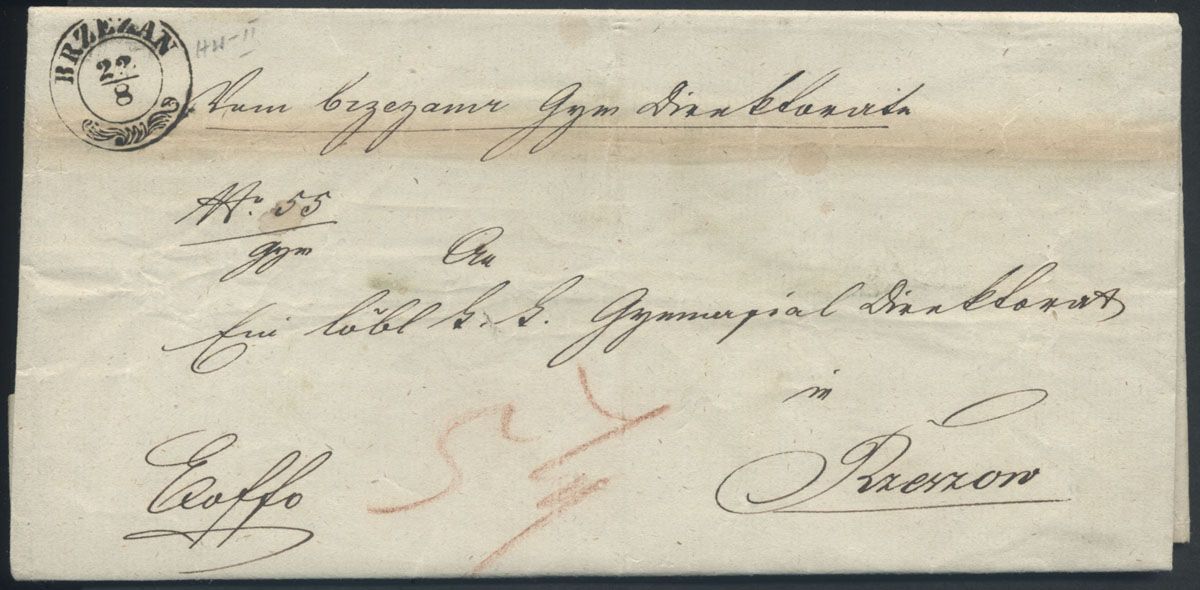 BRZEZAN
22/8
HW-II
Vom brzezaner Gym Direktorate
No. 55
gym
An
Ein löbl k. k. Gymnasial Direktorat
in
Rzeszow
Exoffo